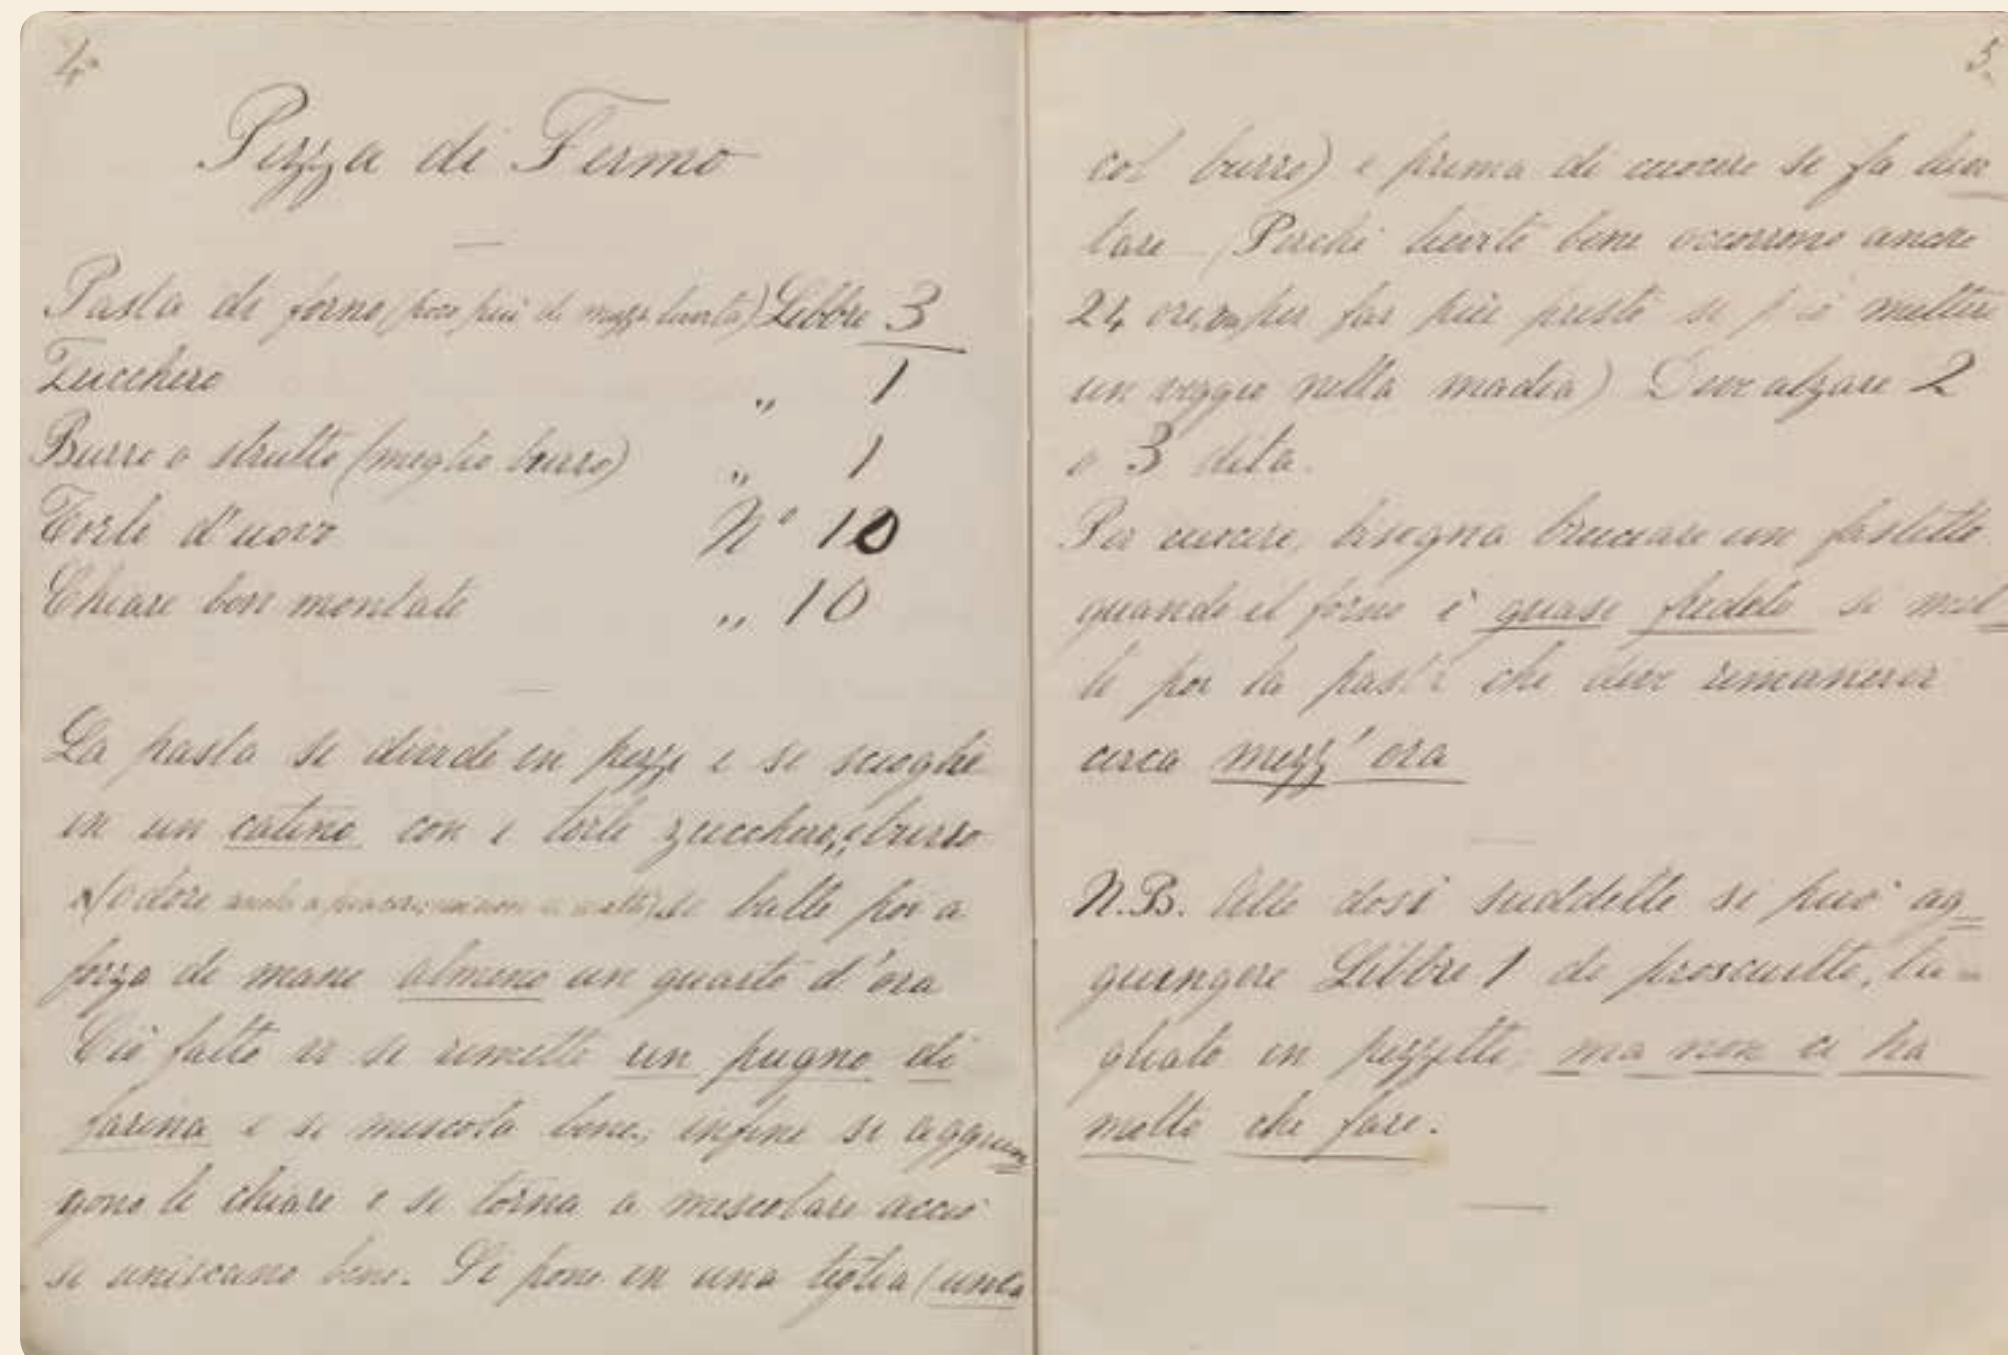 4.
Pizza di Fermo
Pasta di forno (poco più di mezza lievita) Libbre 3
Zucchero „ 1
Burro o strutto (meglio burro) „ 1
Torli d'uovo N° 10
Chiare ben montate „ 10
La pasta si divide in pezzi e si scioglie
in un catino con i torli zucchero, e burro
odore si batte poi a
forza di mane almeno un quarto d'ora
Ciò fatto vi si rimette un pugno di
farina e si mescola bene, infine si aggiun
gono le chiare e si torna a mescolare acciò
si uniscano bene. Si pone in una teglia (unta
5.
col burro) e prima di cuocere si fa liev
tare (Perché lieviti bene occorrono ancre
24 ore, ma per far più presto si può mettere
un veggio nella madia) Deve alzare 2
o 3 dita.
Per cuocere, bisogna bruciare un fastello
quando il forno è quasi freddo si met
te poi la pasta che deve rimanervi
circa mezz'ora
N.B. Alle dosi suddette si può ag
giungere Libbre 1 di prosciutto, ta-
gliato in pezzetti, ma non ci ha
molto che fare.